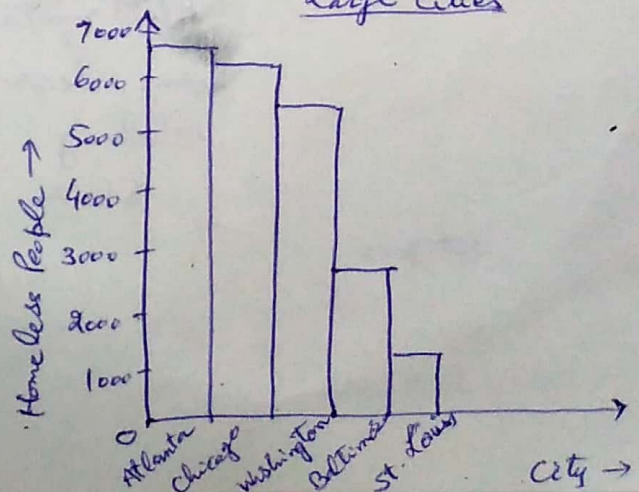 Large Cities
7000
6000
5000
4000
3000
2000
1000
0
Homeless People →
Atlanta
Chicago
Washington
Baltimore
St. Louis
City →